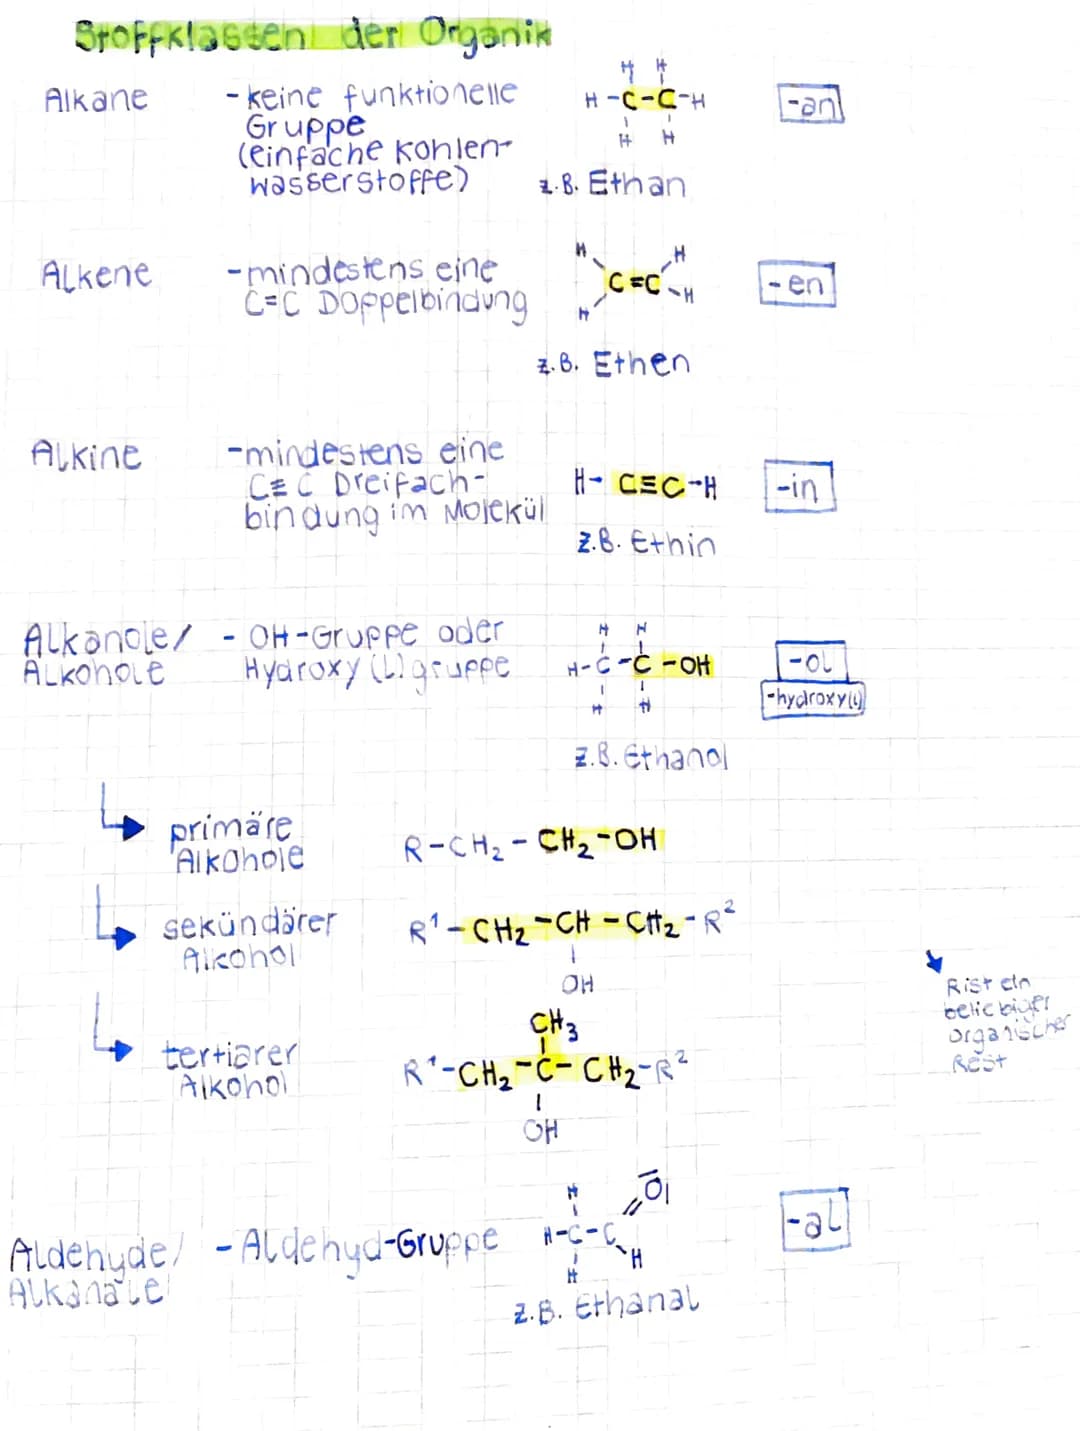 Stoffklassen der Organik
Alkane
- keine funktionelle
Gruppe
(einfache Kohlen-
wasserstoffe)
H H
H - C - C - H
H H
z.B. Ethan
-an
Alkene
- mindestens eine
C=C Doppelbindung
H H
C=C
H H
z.B. Ethen
- en
Alkine
- mindestens eine
C≡C Dreifach-
bindung im Molekül
H - C≡C - H
z.B. Ethin
-in
Alkanole/
Alkohole
- OH-Gruppe oder
Hydroxy(l)gruppe
H H
H - C - C - OH
H H
z.B. Ethanol
-ol
-hydroxy(l)
primäre
Alkohole
R - CH₂ - CH₂ - OH
sekündärer
Alkohol
R¹ - CH₂ - CH - CH₂ - R²
OH
R ist ein
beliebiger
organischer
Rest
tertiärer
Alkohol
CH₃
R¹ - CH₂ - C - CH₂ - R²
OH
Aldehyde/
Alkanale
- Aldehyd-Gruppe
H O
H - C - C
H H
z.B. Ethanal
-al